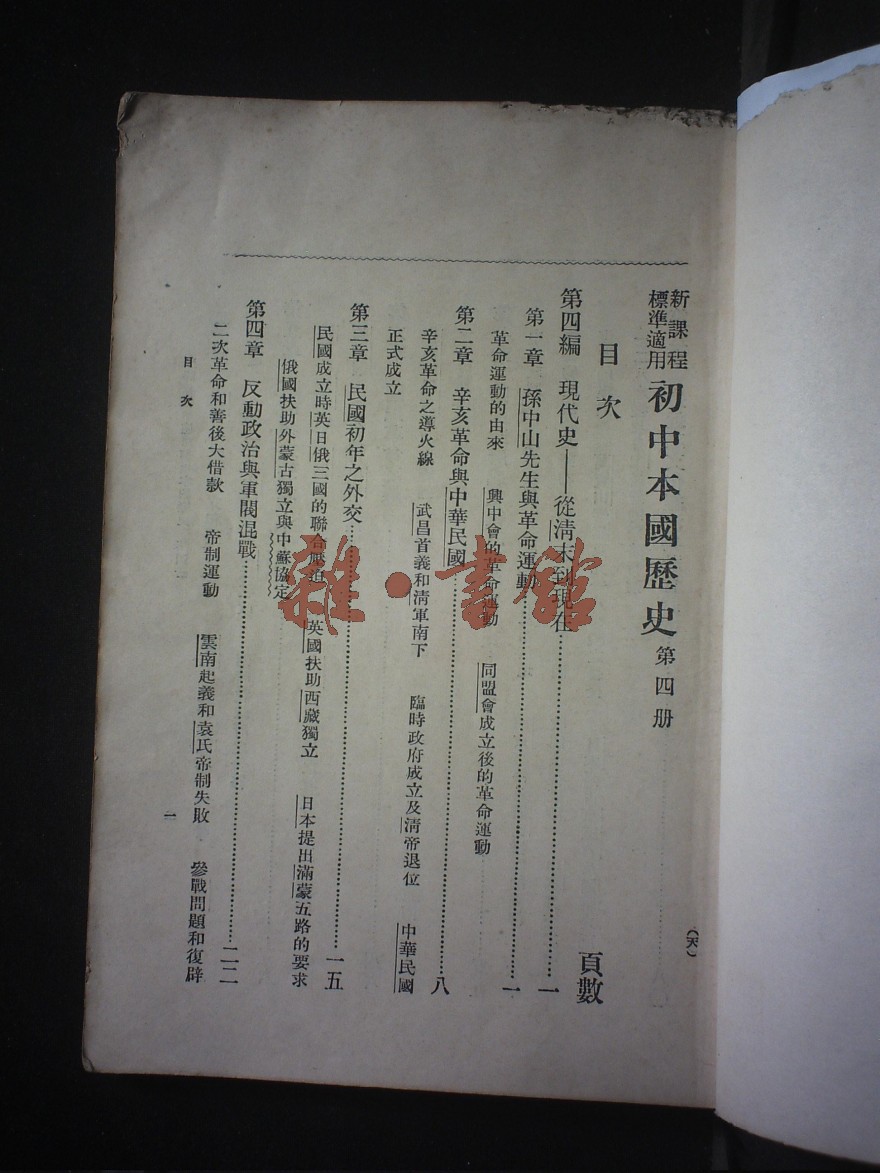 新課程
標準適用
初中本國歷史 第四册
(天)
目次
頁數
第四編 現代史——從清末到現在……一
第一章 孫中山先生與革命運動……一
革命運動的由來 興中會的革命運動 同盟會成立後的革命運動
第二章 辛亥革命與中華民國……八
辛亥革命之導火線 武昌首義和清軍南下 臨時政府成立及清帝退位 中華民國
正式成立
第三章 民國初年之外交……一五
民國成立時英日俄三國的聯合壓迫 英國扶助西藏獨立 日本提出滿蒙五路的要求
俄國扶助外蒙古獨立與中蘇協定
第四章 反動政治與軍閥混戰……二二
二次革命和善後大借款 帝制運動 雲南起義和袁氏帝制失敗 參戰問題和復辟
目次
一
雜·書館